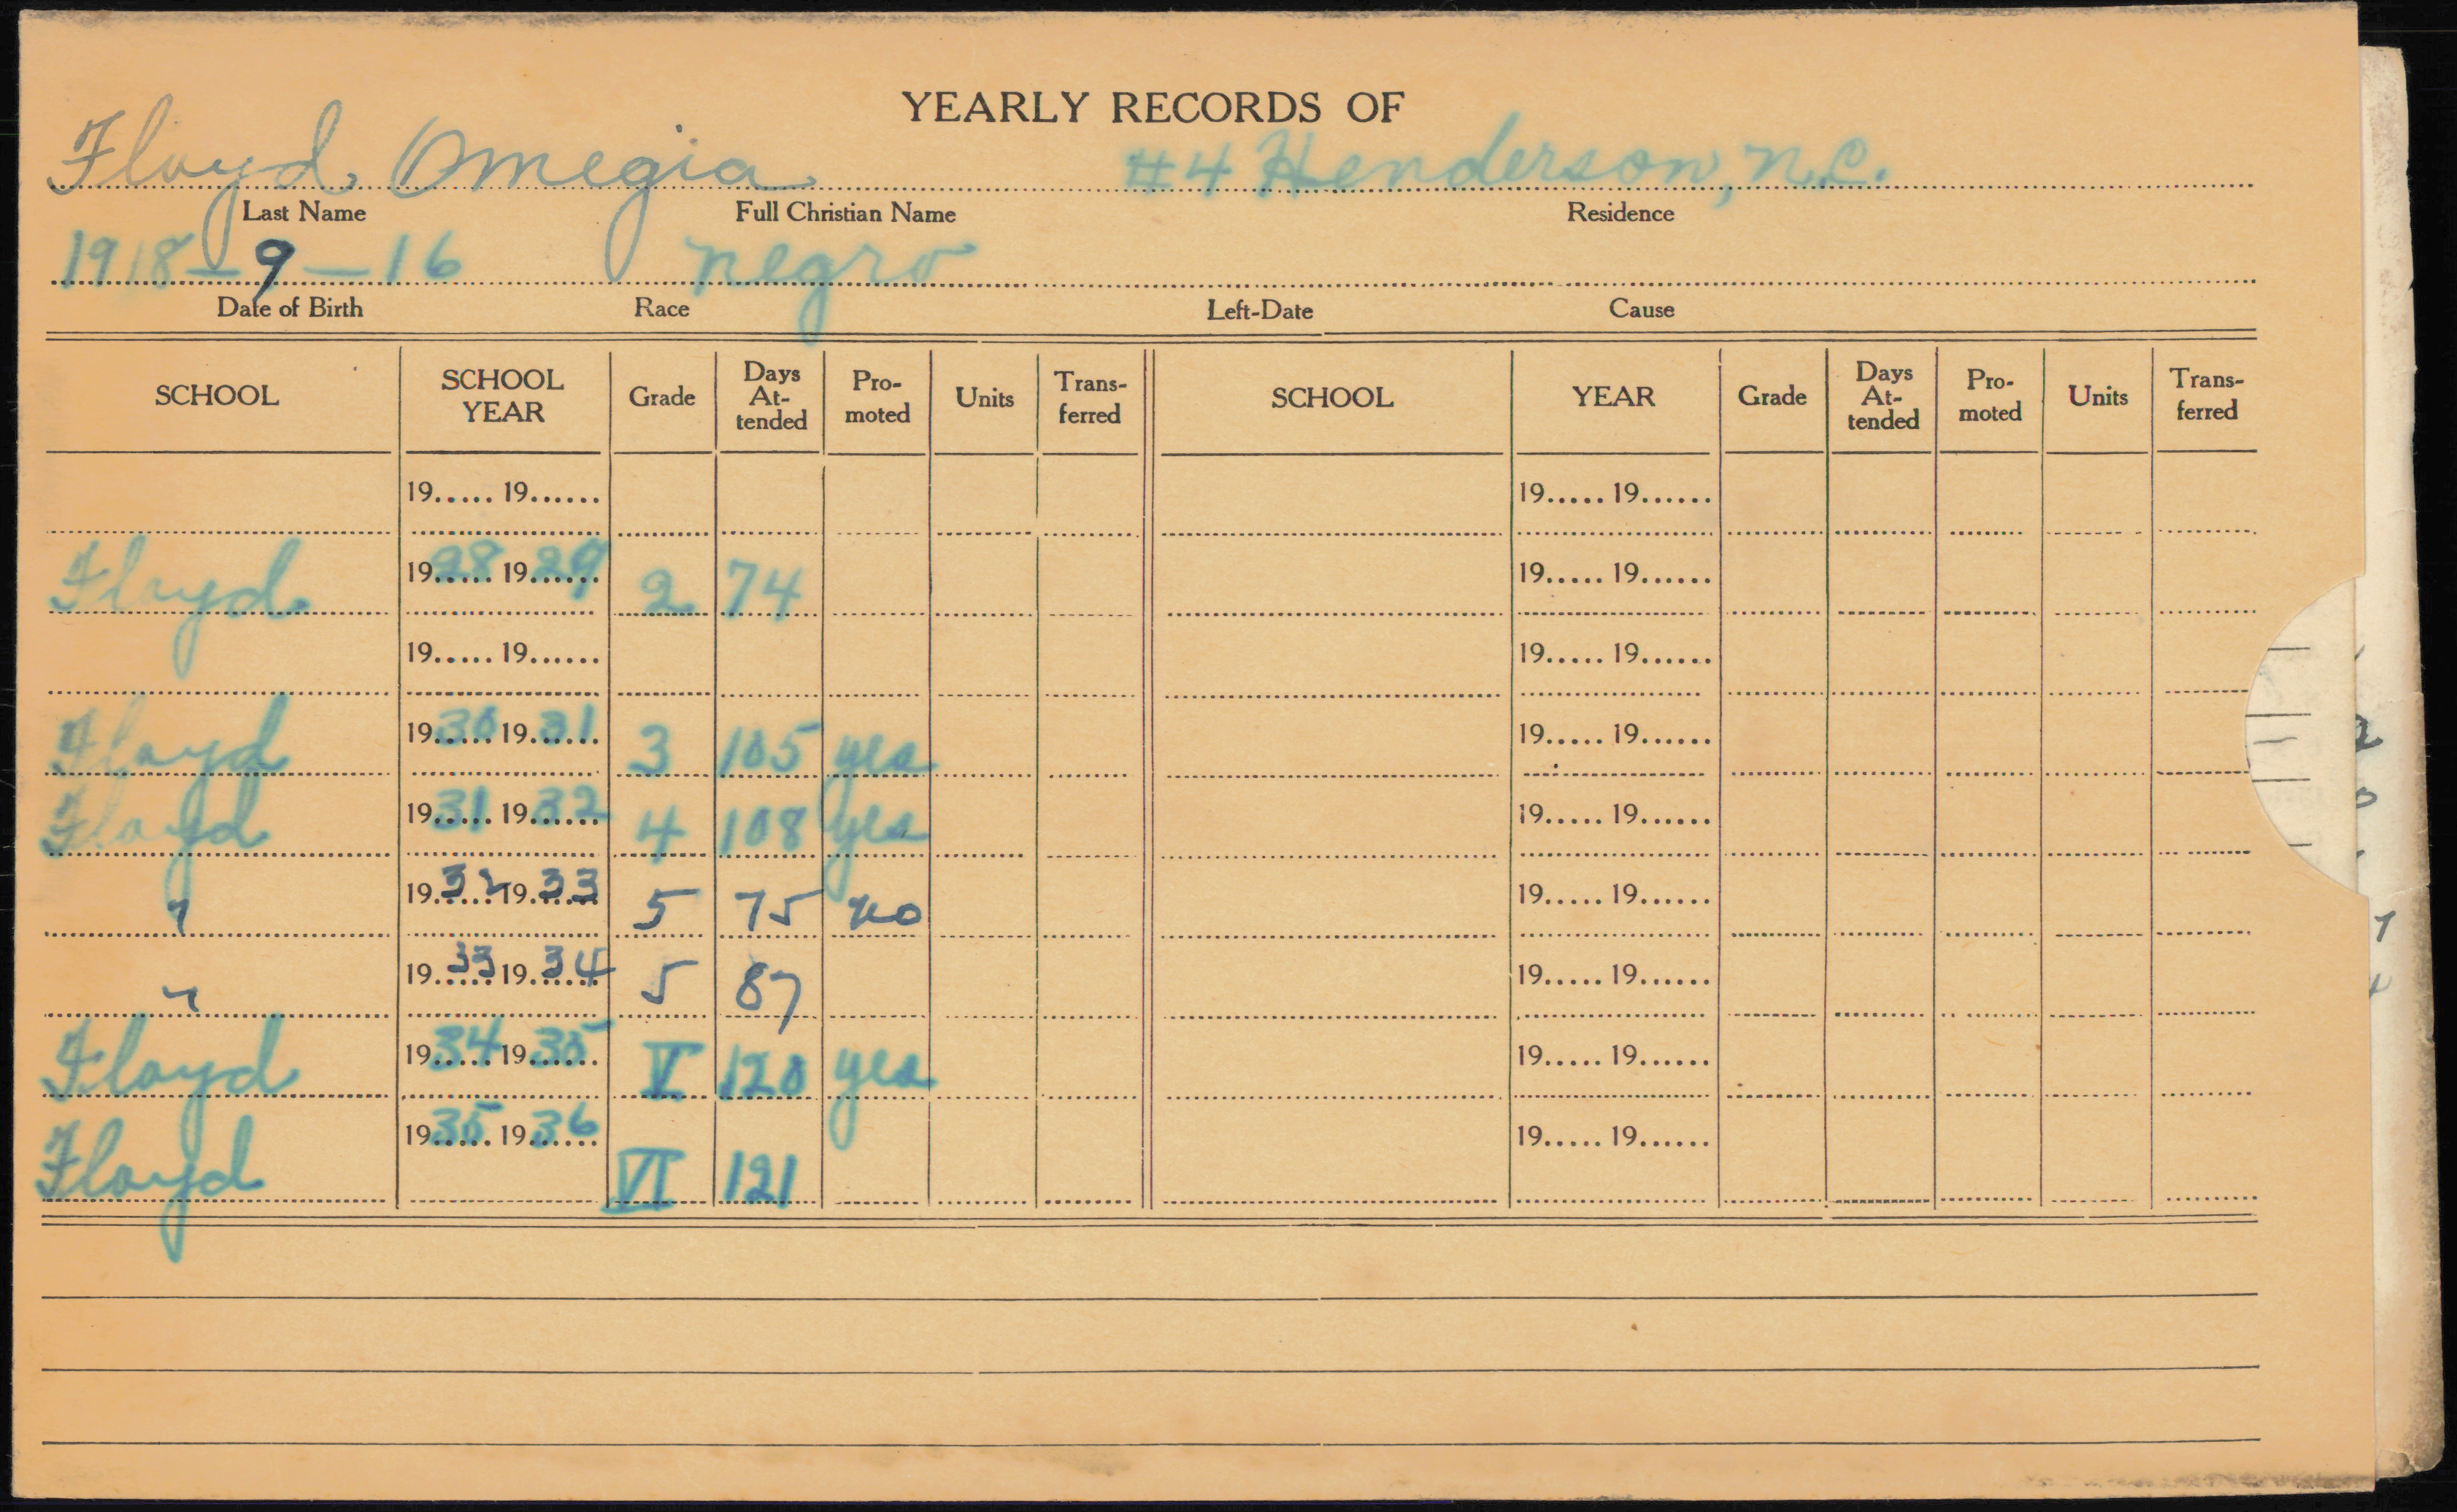 YEARLY RECORDS OF
Floyd, Omegia #4 Henderson, N.C.
Last Name Full Christian Name Residence
1918-9-16 negro
Date of Birth Race Left-Date Cause
SCHOOL SCHOOL YEAR Grade Days At-tended Pro-moted Units Trans-ferred SCHOOL YEAR Grade Days At-tended Pro-moted Units Trans-ferred
19...... 19...... 19...... 19......
Floyd 1928 1929 2 74 19...... 19......
19...... 19...... 19...... 19......
Floyd 1930 1931 3 105 yes 19...... 19......
Floyd 1931 1932 4 108 yes 19...... 19......
" 1932 1933 5 75 no 19...... 19......
" 1933 1934 5 87 19...... 19......
Floyd 1934 1935 V 120 yes 19...... 19......
Floyd 1935 1936 VI 121 19...... 19......